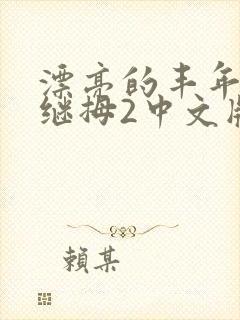 漂亮的丰年
继拇2中文版
賴某